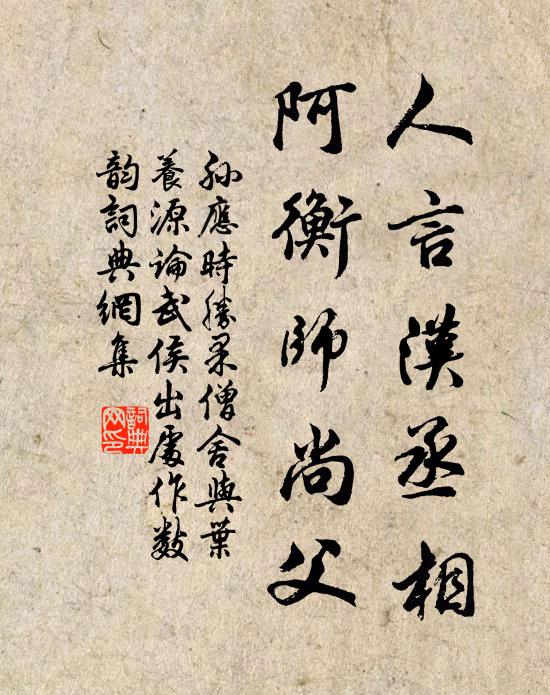 人言漢丞相
阿衡師尚父
孙應時勝果僧舍與葉
養源論武侯出處作数
韵詞典網集
詞典
网印